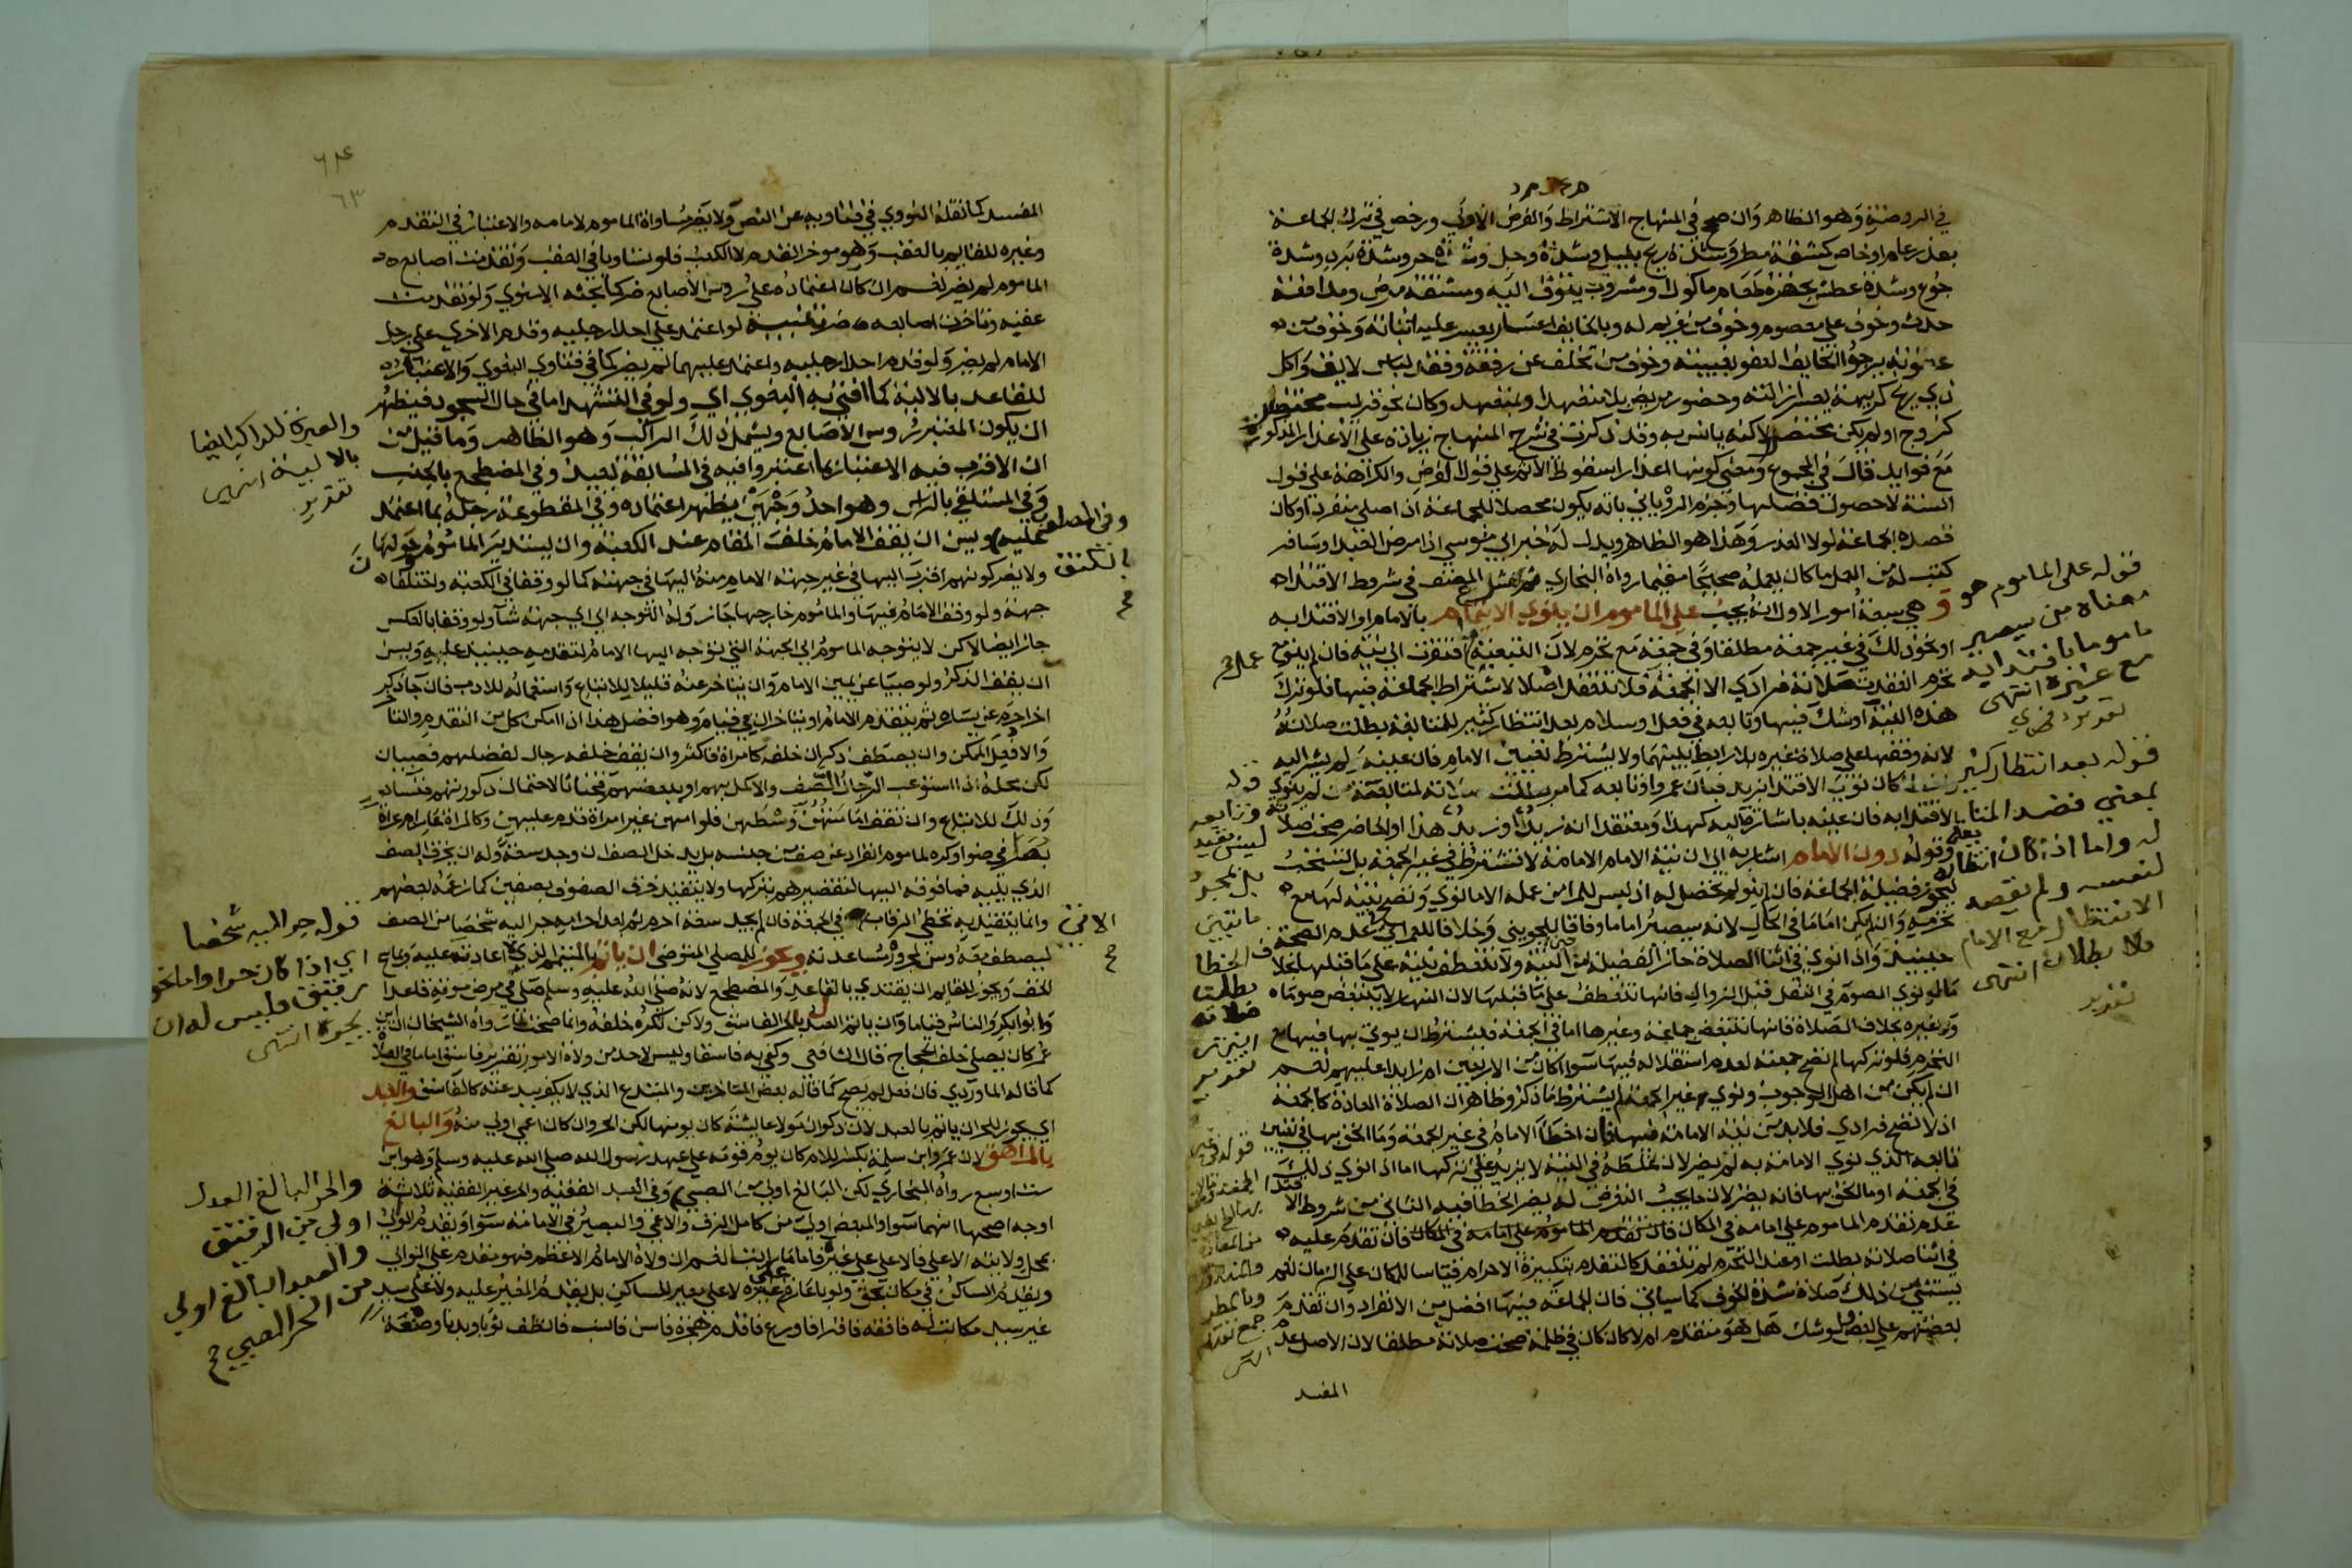 في الروضة وهو الظاهر وان صحح في المنهاج الاشتراط والفرض الاولى ورخص في ترك الجماعة
بعذر عام او خاص كمشقة مطر وشدة ريح بليل وشدة وحل وشدة حر وشدة برد وشدة
جوع وشدة عطش بحضرة طعام ماكول او مشروب يتوق اليه ومشقة مرض ومدافعة
حدث وخوف على معصوم وخوف من غريم له وبالخايف اعسار يعسر عليه اثباته وخوف من
عقوبة يرجو الخايف العفو بغيبته وخوف من تخلف عن رفقة وفقد لباس لايق واكل
ذي ريح كريهة يعسر ازالته وحضور مريض بلا متعهد او بمتعهد وكان نحو قريب محتضر
كزوج او لم يكن محتضرا لكنه يانس به وقد ذكرت في شرح المنهاج زيادة على الاعذار المذكورة
مع فوايد قال في المجموع ومعنى كونها اعذارا سقوط الاثم على قول الفرض والكراهة على قول
السنة لا حصول فضلها وجزم الروياني بانه يكون محصلا للجماعة اذا صلى منفردا وكان
قصده الجماعة لولا العذر وهذا هو الظاهر ويدل له خبر ابي موسى اذا مرض العبد او سافر
كتب له من العمل ما كان يعمله صحيحا مقيما رواه البخاري ثم شرع المصنف في شروط الاقتداء
وهي سبعة امور الاول انه يجب على الماموم ان ينوي الائتمام بالامام او الاقتداء به
او نحو ذلك في غير جمعة مطلقا وفي جمعة مع تحرم لان التبعية عمل فافتقرت الى نية فان لم ينو مع
تحرم انعقدت صلاته فرادى الا الجمعة فلا تنعقد اصلا لاشتراط الجماعة فيها فلو ترك
هذه النية او شك فيها وتابعه في فعل او سلام بعد انتظار كثير للمتابعة بطلت صلاته
لانه وقفها على صلاة غيره بلا رابط بينهما ولا يشترط تعيين الامام فان عينه ولم يشر اليه
كان نوى الاقتدا بزيد فبان عمروا وتابعه كما مر بطلت صلاته لمتابعته من لم ينو
الاقتدا به فان عينه باشارة اليه كهذا ومعتقدا انه زيد او زيد هذا او الحاضر صحت صلاته
وقوله دون الامام اشار به الى ان نية الامام الامامة لا تشترط في غير الجمعة بل تستحب
ليحوز فضيلة الجماعة فان لم ينو لم تحصل له اذ ليس للمرا من عمله الا ما نوى وتصح نيته لها مع
تحرمه وان لم يكن اماما في الحال لانه سيصير اماما وفاقا للجويني وخلافا للعمراني في عدم الصحة
حينيذ واذا نوى في اثنا الصلاة حاز الفضيلة من حين النية ولا تنعطف نيته على ما قبلها بخلاف
ما لو نوى الصوم في النفل قبل الزوال فانها تنعطف على ما قبلها لان النهار لا يتبعض صوما
وغيره بخلاف الصلاة فانها تتبعض جماعة وغيرها اما في الجمعة فيشترط ان ينوي بها فيها مع
التحرم فلو تركها لم تصح جمعته لعدم استقلاله فيها سوا كان من الاربعين ام زايدا عليهم نعم
ان لم يكن من اهل الوجوب ونوى غير الجمعة لم يشترط ما ذكر وظاهر ان الصلاة المعادة كالجمعة
اذ لا تصح فرادى فلا بد من نية الامامة فيها فان اخطا الامام في غير الجمعة وما الحق بها في تعيين
تابعه الذي نوى الامامة به لم يضر لان غلطه في النية لا يزيد على تركها اما اذا نوى ذلك
في الجمعة او ما الحق بها فانه يضر لان ما يجب التعرض له يضر الخطا فيه الثاني من شروط الاقتدا
عدم تقدم الماموم على امامه في المكان فان تقدم الماموم على امامه في المكان فان تقدم عليه
في اثنا صلاته بطلت او عند التحرم لم تنعقد كالتقدم بتكبيرة الاحرام قياسا للمكان على الزمان نعم
يستثنى من ذلك صلاة شدة الخوف كما سياتي فان الجماعة فيها افضل من الانفراد وان تقدم
بعضهم على بعض ولو شك هل هو متقدم ام لا كان كان في ظلمة صحت صلاته مطلقا لان الاصل عدم
المفسد
قوله على الماموم هو
معناه من سيصير
ماموما باقتدايه
مع غيره انتهى
تقرير
قوله بعد انتظار كثير
بمعنى قصد المتابعة
له واما اذا كان انتظاره
لنفسه ولم يقصد
الانتظار مع الامام
فلا بطلان انتهى
تقرير
قوله
وتابعه
ليس بقيد
بل بمجرد
ما تبين
الخطا
بطلت
صلاته
انتهى
تقرير
المفسد كما نقله النووي في فتاويه عن النص ولا يضر مساواة الماموم لامامه والاعتبار في التقدم
وغيره للقايم بالعقب وهو موخر القدم لا الكعب فلو تساويا في العقب وتقدمت اصابع
الماموم لم يضر نعم ان كان اعتماده على روس الاصابع ضر كما بحثه الاسنوي ولو تقدمت
عقبه وتاخرت اصابعه ضر لو اعتمد على احدا رجليه وقدم الاخرى على رجل
الامام لم يضر ولو قدم احدا رجليه واعتمد عليهما لم يضر كما في فتاوي البغوي والاعتبار
للقاعد بالالية كما افتى به البغوي اي ولو في التشهد اما في حال السجود فيظهر
ان يكون المعتبر روس الاصابع ويشمل ذلك الراكب وهو الظاهر وما قيل من
ان الاقرب فيه الاعتبار بما اعتبروا فيه في المسابقة بعيد وفي المضطجع بالجنب
وفي المستلقي بالراس وهو احد وجهين يظهر اعتماده وفي المقطوعة رجله بما اعتمد
عليه ويسن ان يقف الامام خلف المقام عند الكعبة وان يستدير المامومون حولها
ولا يضر كونهم اقرب اليها في غير جهة الامام منه اليها في جهته كما لو وقفا في الكعبة واختلفا
جهة ولو وقف الامام فيها والماموم خارجها جاز وله التوجه الى اي جهة شا ولو وقفا بالعكس
جاز ايضا لاكن لا يتوجه الماموم الى الجهة التي توجه اليها الامام لتقدمه حينيذ عليه ويسن
ان يقف الذكر ولو صبيا عن يمين الامام وان يتاخر عنه قليلا للاتباع واستعماله للادب فان جا ذكر
اخر احرم عن يساره ثم يتقدم الامام او يتاخران في قيام وهو افضل هذا اذا امكن كل من التقدم والتاخر
والا فعل الممكن وان يصطف ذكران خلفه كامراة فاكثر وان يقف خلفه رجال لفضلهم فصبيان
لكن محله اذا استوعب الرجال الصف والا كمل بهم او ببعضهم فخناثا لاحتمال ذكورتهم فنسا
وذلك للاتباع وان تقف امامتهن وسطهن فلو امهن غير امراة قدم عليهن وكالمراة عار ام عراة
بصرا في ضوا وكره لماموم انفراد عن صف من جنسه بل يدخل الصف ان وجد سعة وله ان يخرق الصف
الذي يليه فما فوقه اليها لتقصيرهم بتركها ولا يتقيد خرق الصفوف بصفين كما زعمه بعضهم
وانما يتقيد به تخطي الرقاب الاتي في الجمعة فان لم يجد سعة احرم ثم بعد احرامه جر اليه شخصا من الصف
ليصطف معه وسن لمجروره مساعدته ويجوز للمصلي المتوضي ان ياتم بالمتيمم الذي لا اعادة عليه وبماسح
الخف ويجوز للقايم ان يقتدي بالقاعد والمضطجع لانه صلى الله عليه وسلم صلى في مرض موته قاعدا
وابوا بكر والناس قياما وان ياتم العدل بالفاسق ولاكن تكره خلفه وانما صحت لما رواه الشيخان ان ابن
عمر كان يصلي خلف الحجاج قال الشافعي وكفى به فاسقا وليس لاحد من ولاة الامور تقرير فاسق اماما في الصلاة
كما قاله الماوردي فان فعل لم يصح كما قاله بعض المتاخرين والمبتدع الذي لا يكفر ببدعته كالفاسق والعبد
اي يجوز للحر ان ياتم بالعبد لان ذكوان مولا عايشة كان يومها لكن الحر وان كان اعمى اولى منه والبالغ
بالمراهق لان عمرو ابن سلمة بكسر اللام كان يوم قومه على عهد رسول الله صلى الله عليه وسلم وهو ابن
ست او سبع رواه البخاري لكن البالغ اولى من الصبي وفي العبد الفقيه والحر غير الفقيه ثلاثة
اوجه اصحها انهما سوا والمبعض اولى من كامل الرق والاعمى والبصير في الامامة سوا ويقدم الوالي
بمحل ولايته الاعلى فالاعلى على غيره فامام راتب نعم ان ولاه الامام الاعظم فهو مقدم على الوالي
ويقدم الساكن في مكان بحق ولو باعارة على غيره لا على معير للساكن بل يقدم المعير عليه ولا على سيد
غير سيد مكاتب له فافقه فاقرا فاورع فاقدم هجرة فاسن فانسب فانظف ثوبا وبدنا وصنعة
والعبرة للراكب ايضا
بالالية انتهى
تقرير
وفي المصلوب
بالكتف
صح
الاتي
صح
قوله جر اليه شخصا
اي اذا كان حرا واما نحو
رقيق فليس له ان
يجره انتهى
والحر البالغ العدل
اولى من الرقيق
والعبد البالغ اولى
من الحر الصبي صح